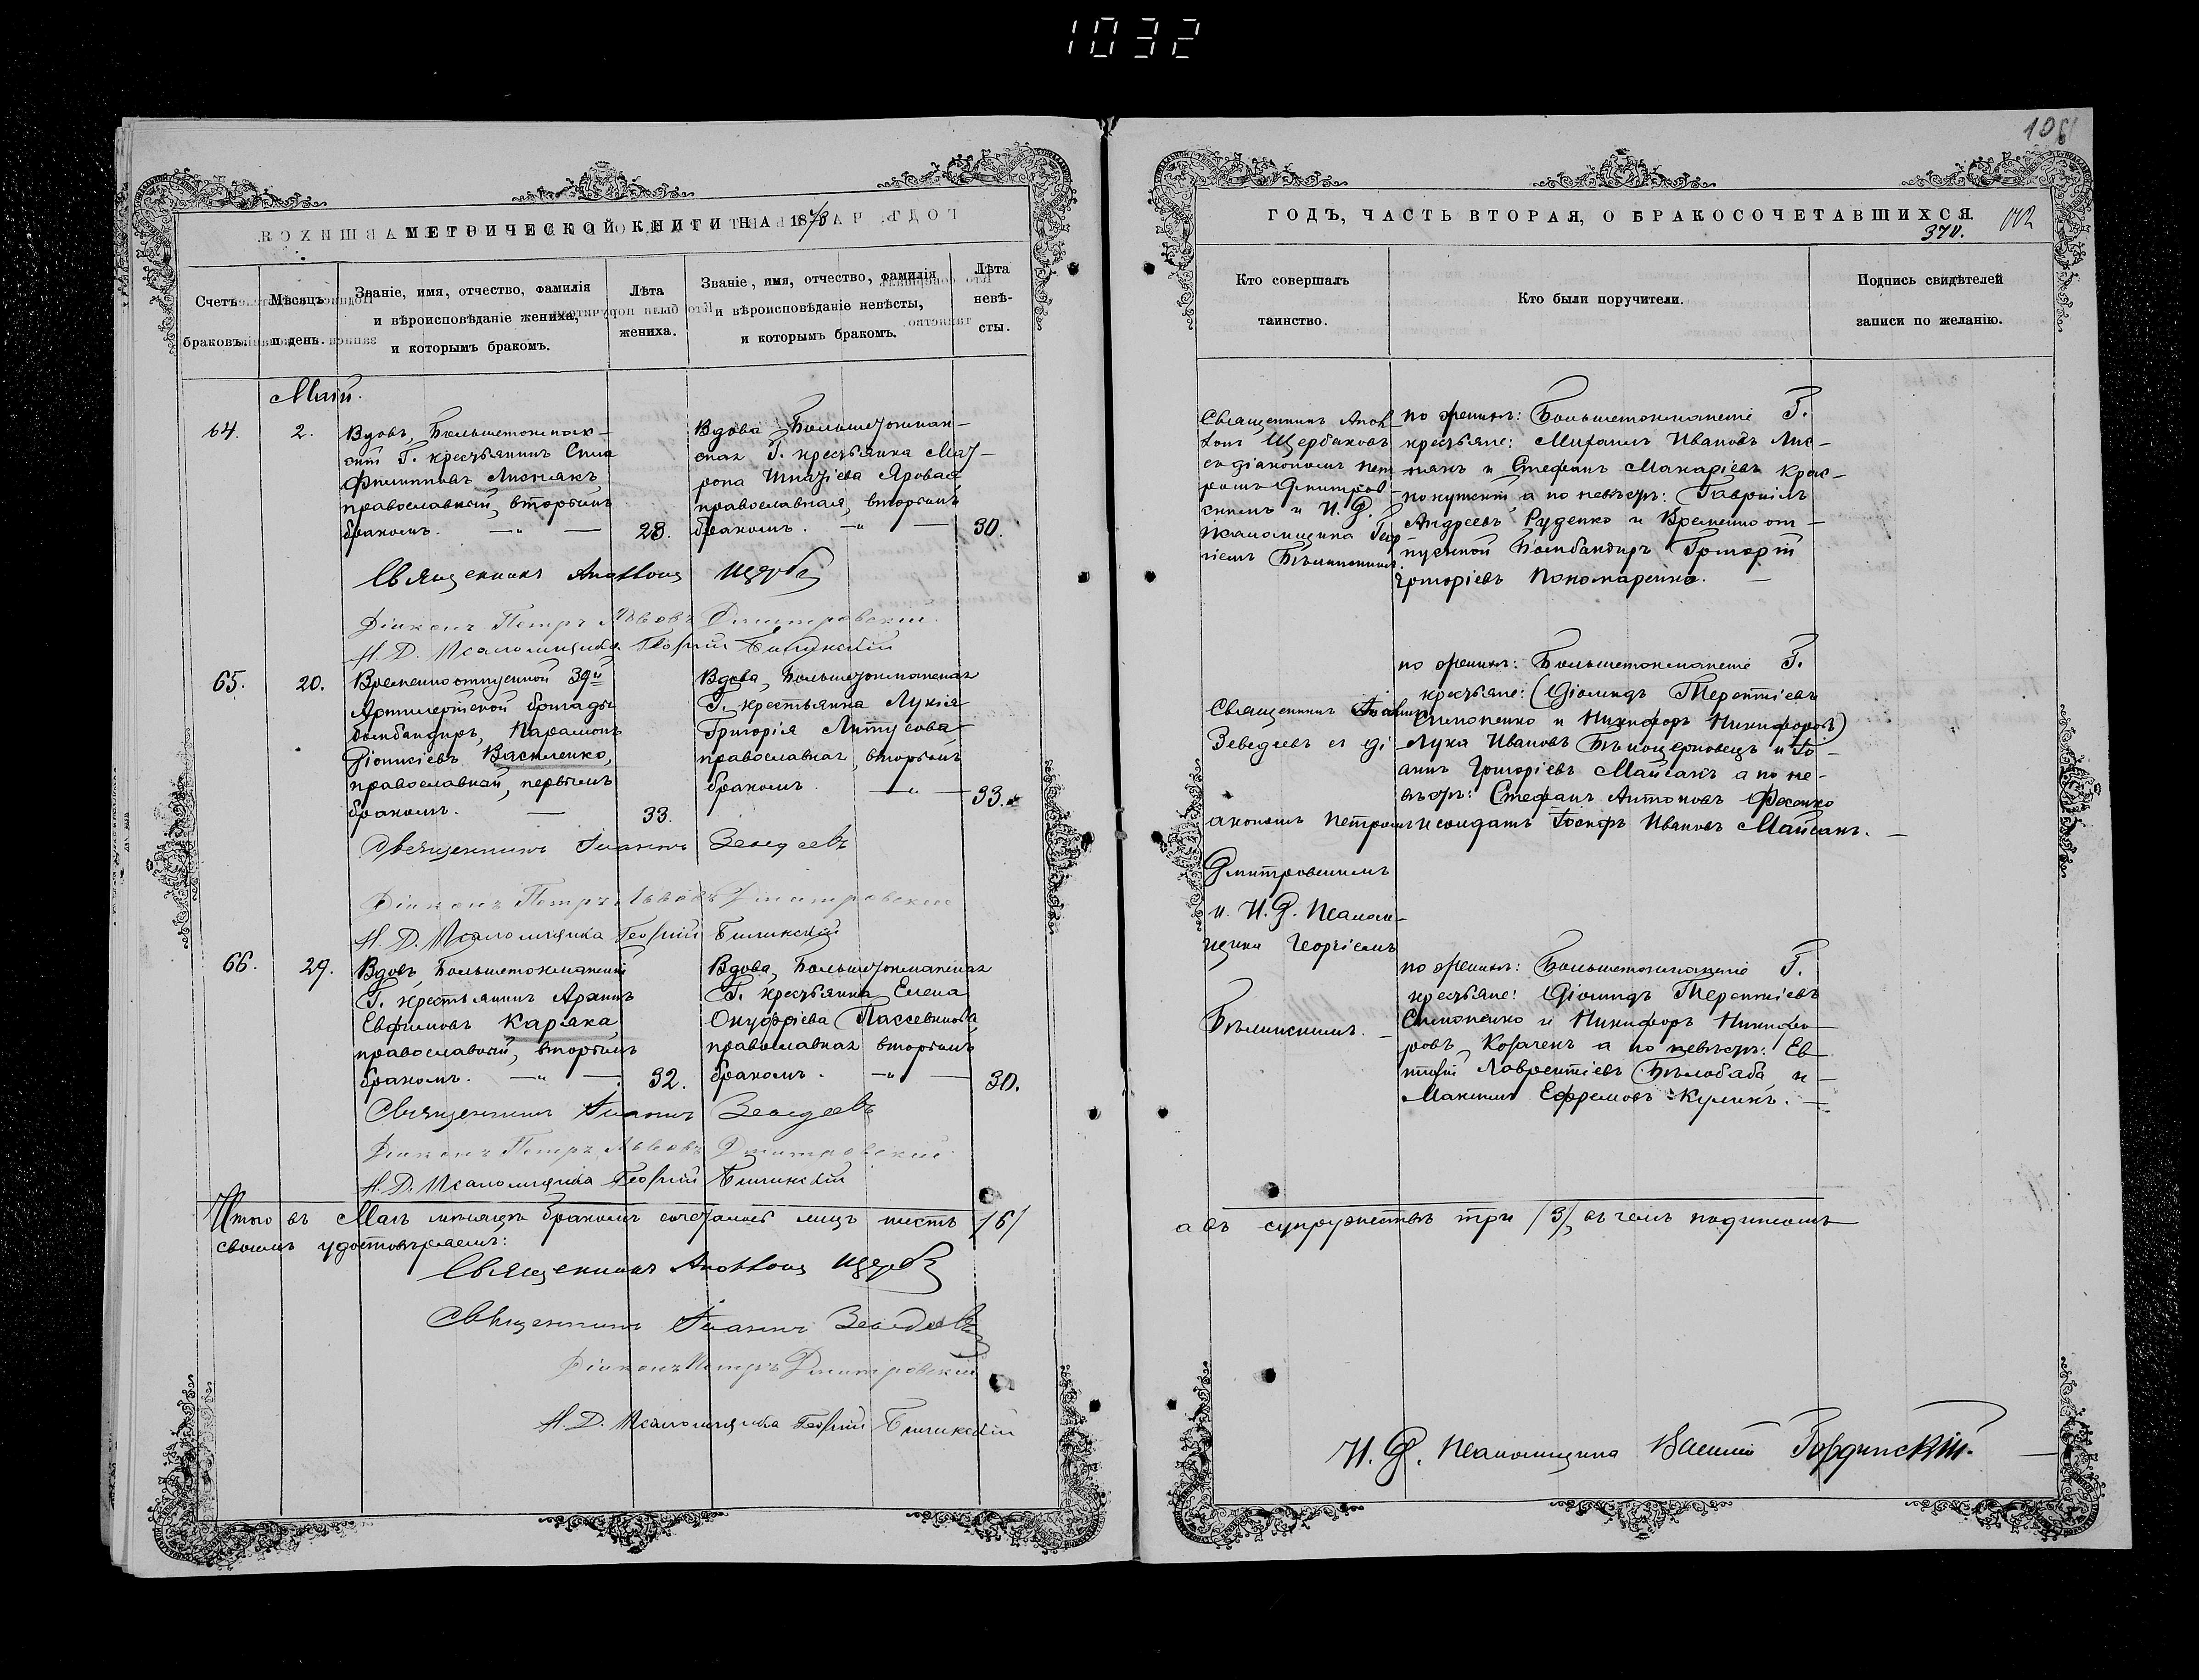 1032
МЕТРИЧЕСКОЙ КНИГИ НА 18
Счетъ браковъ.
Мѣсяцъ и день.
Званіе, имя, отчество, фамилія
и вѣроисповѣданіе жениха,
и которымъ бракомъ.
Лѣта
жениха.
Званіе, имя, отчество, фамилія
и вѣроисповѣданіе невѣсты,
и которымъ бракомъ.
Лѣта
невѣ-
сты.
Май.
64.
2.
Вдовъ, Большетокмак-
скій Г. крестьянинъ
Филипповъ Лиснякъ
православный, вторымъ
бракомъ. 28.
Вдова Большетокмак-
ская Г. крестьянка Мат-
рона Яровая
православная, вторымъ
бракомъ. 30.
Священникъ
Діаконъ Петръ Львовъ Дмитровскій
И. Д. Псаломщика Георгій Билинскій
65.
20.
Временноотпускной 39й
Артиллерійской бригады
бомбандиръ, Парамонъ
Діонисіевъ Василенко,
православный, первымъ
бракомъ. 33.
Вдова, Большетокмакская
Г. крестьянка Лукія
Григорія
православная, вторымъ
бракомъ 33.
Священникъ Іоаннъ Зеведеевъ
Діаконъ Петръ Львовъ Дмитровскій
И. Д. Псаломщика Георгій Билинскій
66.
29.
Вдовъ, Большетокмакскій
Г. крестьянинъ Архипъ
Евфимовъ Каряка,
православный, вторымъ
бракомъ. 32.
Вдова, Большетокмакская
Г. крестьянка Елена
Онуфріева
православная вторымъ
бракомъ. 30.
Священникъ Іоаннъ Зеведеевъ
Діаконъ Петръ Львовъ Дмитровскій
И. Д. Псаломщика Георгій Билинскій
Итого въ Маѣ мѣсяцѣ бракомъ сочеталось лицъ шесть /6/
своимъ удостовѣряемъ:
Священникъ
Священникъ Іоаннъ Зеведеевъ
Діаконъ Петръ Дмитровскій
И. Д. Псаломщика Георгій Билинскій
ГОДЪ, ЧАСТЬ ВТОРАЯ, О БРАКОСОЧЕТАВШИХСЯ.
370.
102
Кто совершалъ
таинство.
Кто были поручители.
Подпись свидѣтелей
записи по желанію.
Священникъ
Щербаковъ
съ діакономъ Пет
ромъ Дмитров-
скимъ и И. Д.
Псаломщика Геор
гіемъ Бѣлинскимъ.
по женихѣ: Большетокмакскіе Г.
крестьяне: Михаилъ Ивановъ Лис-
някъ и Стефанъ Макаріевъ Крас-
а по невѣстѣ: Гавріилъ
Андреевъ Руденко и Временноот-
пускной Бомбандиръ Григорій
Григоріевъ Пономаренко.
Священникъ Іоаннъ
Зеведеевъ съ ді
акономъ Петромъ
Дмитровскимъ
и И. Д. Псалом-
щика Георгіемъ
Бѣлинскимъ.
по женихѣ: Большетокмакскіе Г.
крестьяне: (Діомидъ Терентіевъ
Симоненко и Никифоръ Никифоровъ)
Лука Ивановъ Бѣлоцерковецъ и Іо-
аннъ Григоріевъ Майсакъ а по не-
вѣстѣ: Стефанъ Антоновъ Фесенко
и солдатъ Іосифъ Ивановъ Майсакъ.
по женихѣ: Большетокмакскіе Г.
крестьяне: Діомидъ Терентіевъ
Симоненко и Никифоръ Никифо-
ровъ Козаченъ а по невѣстѣ: Ев-
Лаврентіевъ Бѣлобаба, и
Максимъ Ефремовъ Куликъ.
а въ супружествѣ три /3/, въ чемъ подписомъ
И. Д. Псаломщика Василій Гординскій.